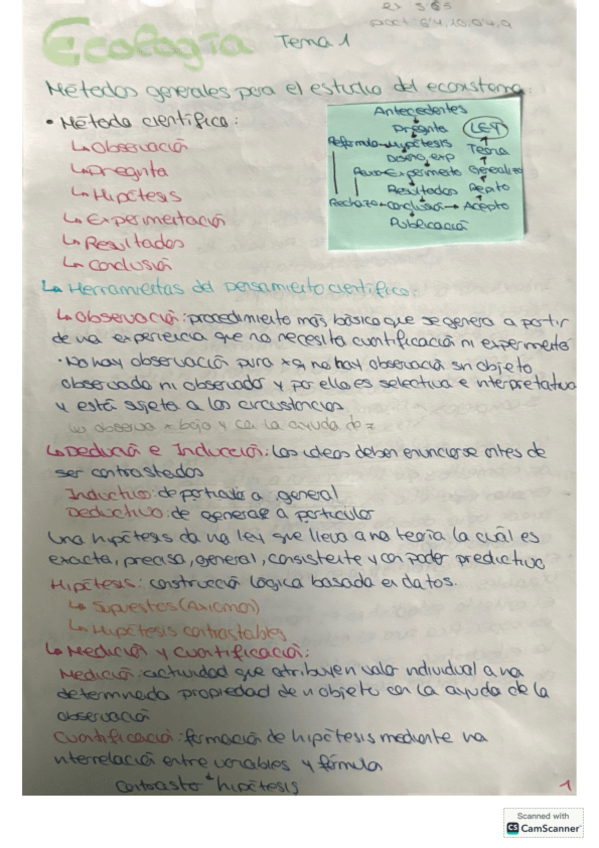 Ecología Tema 1
Métodos generales para el estudio del ecosistema:
• Método científico:
↳ Observación
↳ Pregunta
↳ Hipótesis
↳ Experimentación
↳ Resultados
↳ Conclusión
Antecedentes
Pregunta LEY
Reformulo Hipótesis Teoría
Diseño exp
Experimento Generalizo
Resultados Repito
Rechazo Conclusión → Acepto
Publicación
↳ Herramientas del pensamiento científico:
↳ Observación: procedimiento más básico que se genera a partir
de una experiencia que no necesita cuantificación ni experimento
• No hay observación pura xq no hay observación sin objeto
observado ni observador y por ello es selectiva e interpretativa
y está sujeta a las circunstancias
↳ Deducción e Inducción: las ideas deben enunciarse antes de
ser contrastadas
Inductivo: de particular a general
Deductivo: de general a particular
Una hipótesis da una ley que lleva a una teoría la cuál es
exacta, precisa, general, consistente y con poder predictivo
Hipótesis: construcción lógica basada en datos.
↳ Supuestos (Axiomas)
↳ Hipótesis contrastables
↳ Medición y Cuantificación:
Medición: actividad que atribuyen valor individual a una
determinada propiedad de un objeto con la ayuda de la
observación
Cuantificación: formación de hipótesis mediante una
interrelación entre variables y fórmula
contrasto hipótesis
1
Scanned with
CS CamScanner